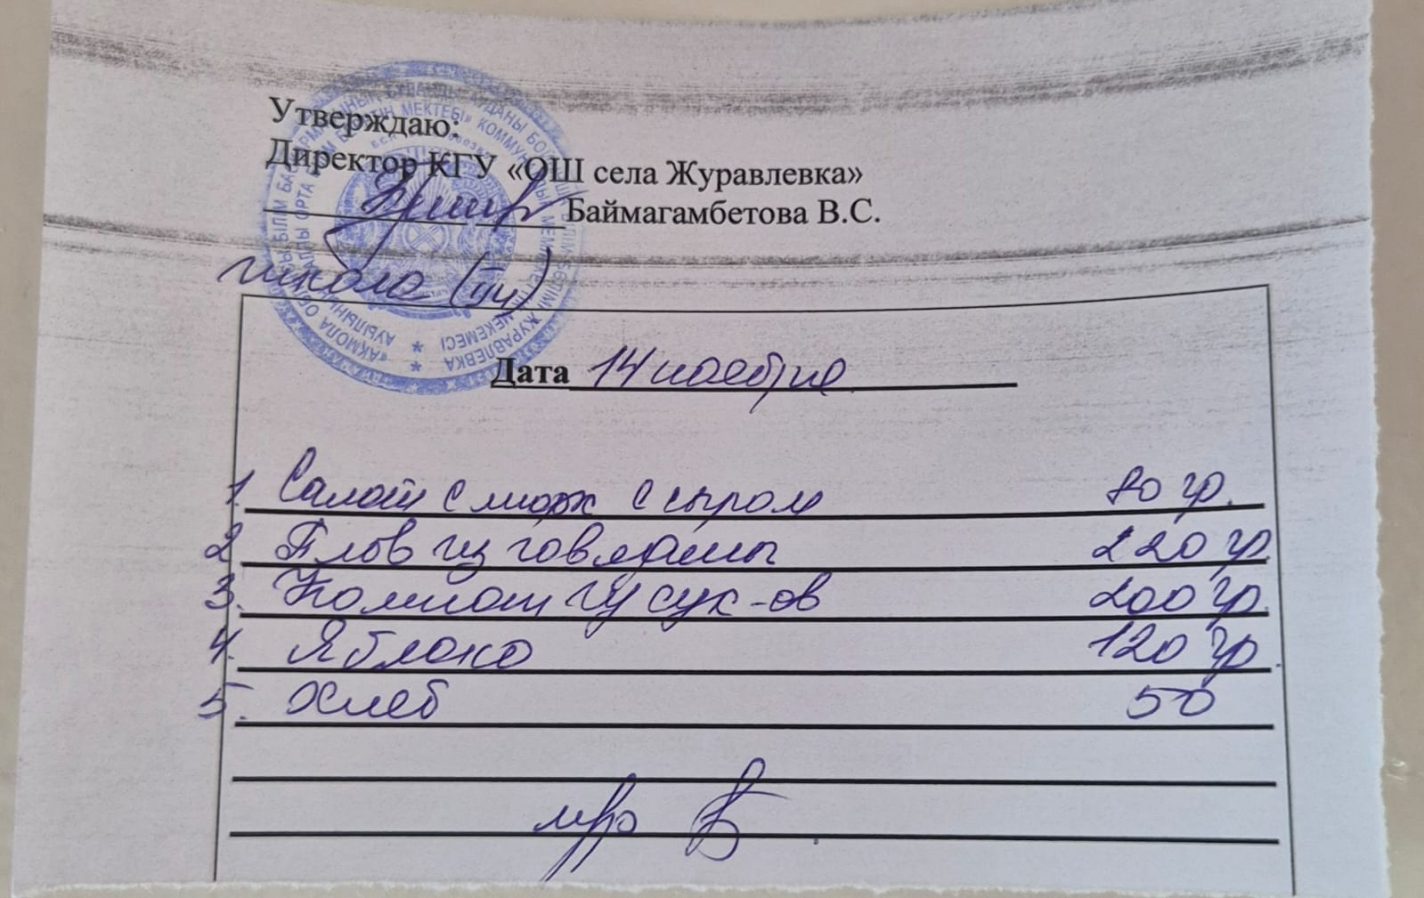 Утверждаю:
Директор КГУ «ОШ села Журавлевка»
Баймагамбетова В.С.
школа
Дата 14 ноября
1. Салат с морк с сыром 80 гр.
2 Плов из говядины 220 гр
3. Компот из сух-ов 200 гр.
4. Яблоко 120 гр.
5. Хлеб 50